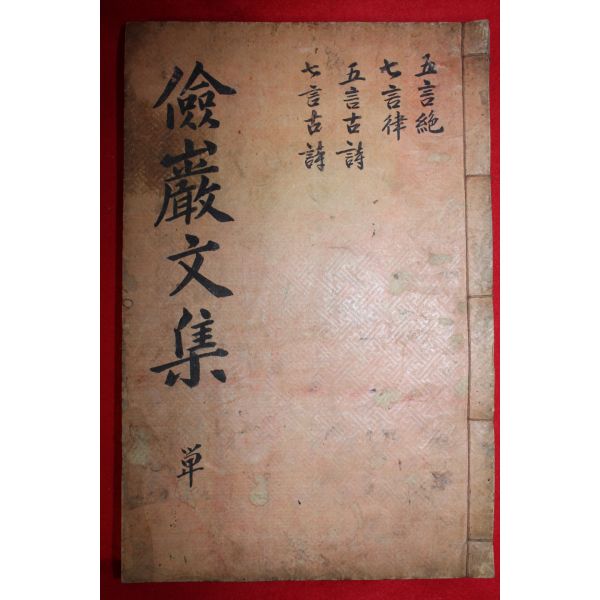 五言絶
七言律
五言古詩
七言古詩
儉巖文集 単